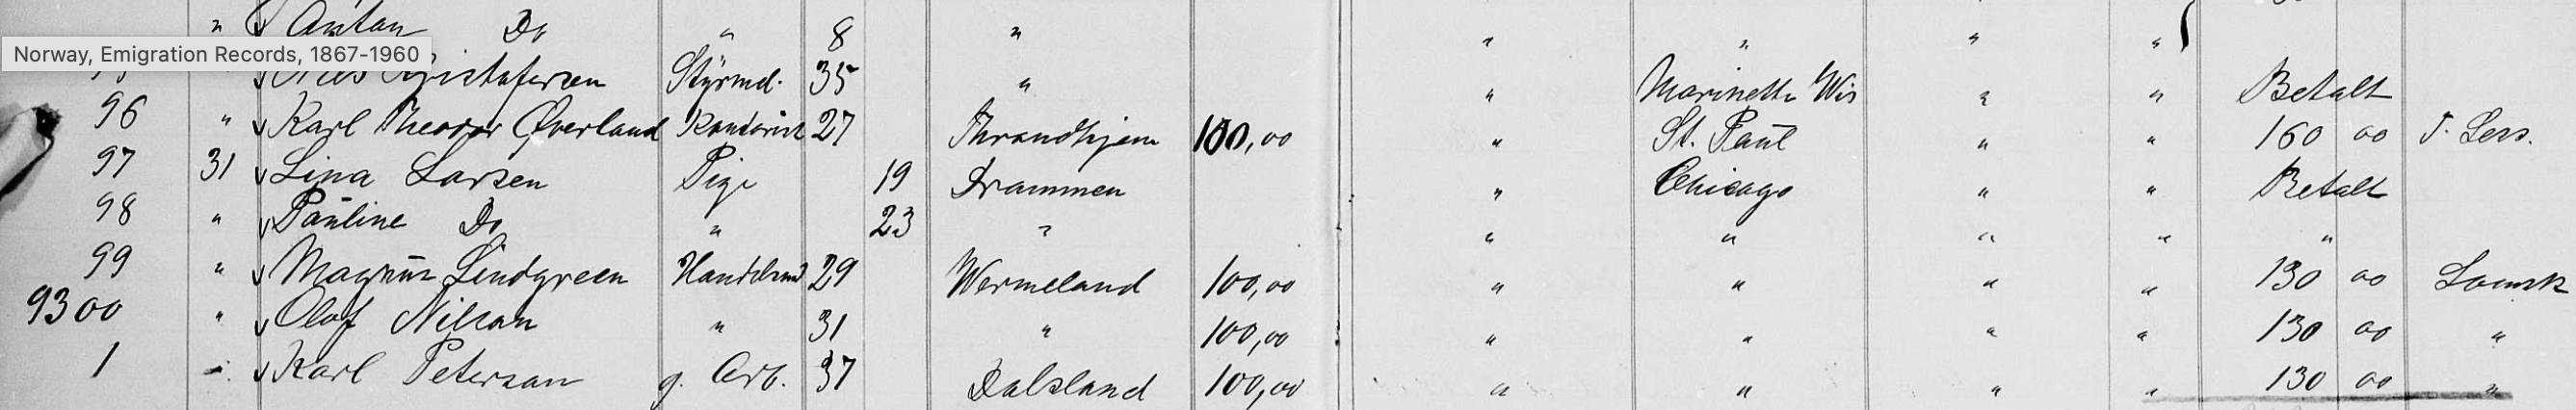 " Anton Do " 8 " " " " "
Norway, Emigration Records, 1867-1960
" Styrmd. 35 " " Marinette Wis " " Betalt
96 " Karl Theodor Øverland 27 Thrandhjem 100,00 " St. Paul " " 160 00
97 31 Lina Larsen Pige 19 Drammen " Chicago " " Betalt
98 " Pauline Do " 23 " " " " " "
99 " Magnus Lindgreen 29 Wermeland 100,00 " " " " 130 00
9300 " Olof Nilsan " 31 " 100,00 " " " " 130 00 "
1 " Karl Petersan g. Arb. 37 Dalsland 100,00 " " " " 130 00 "